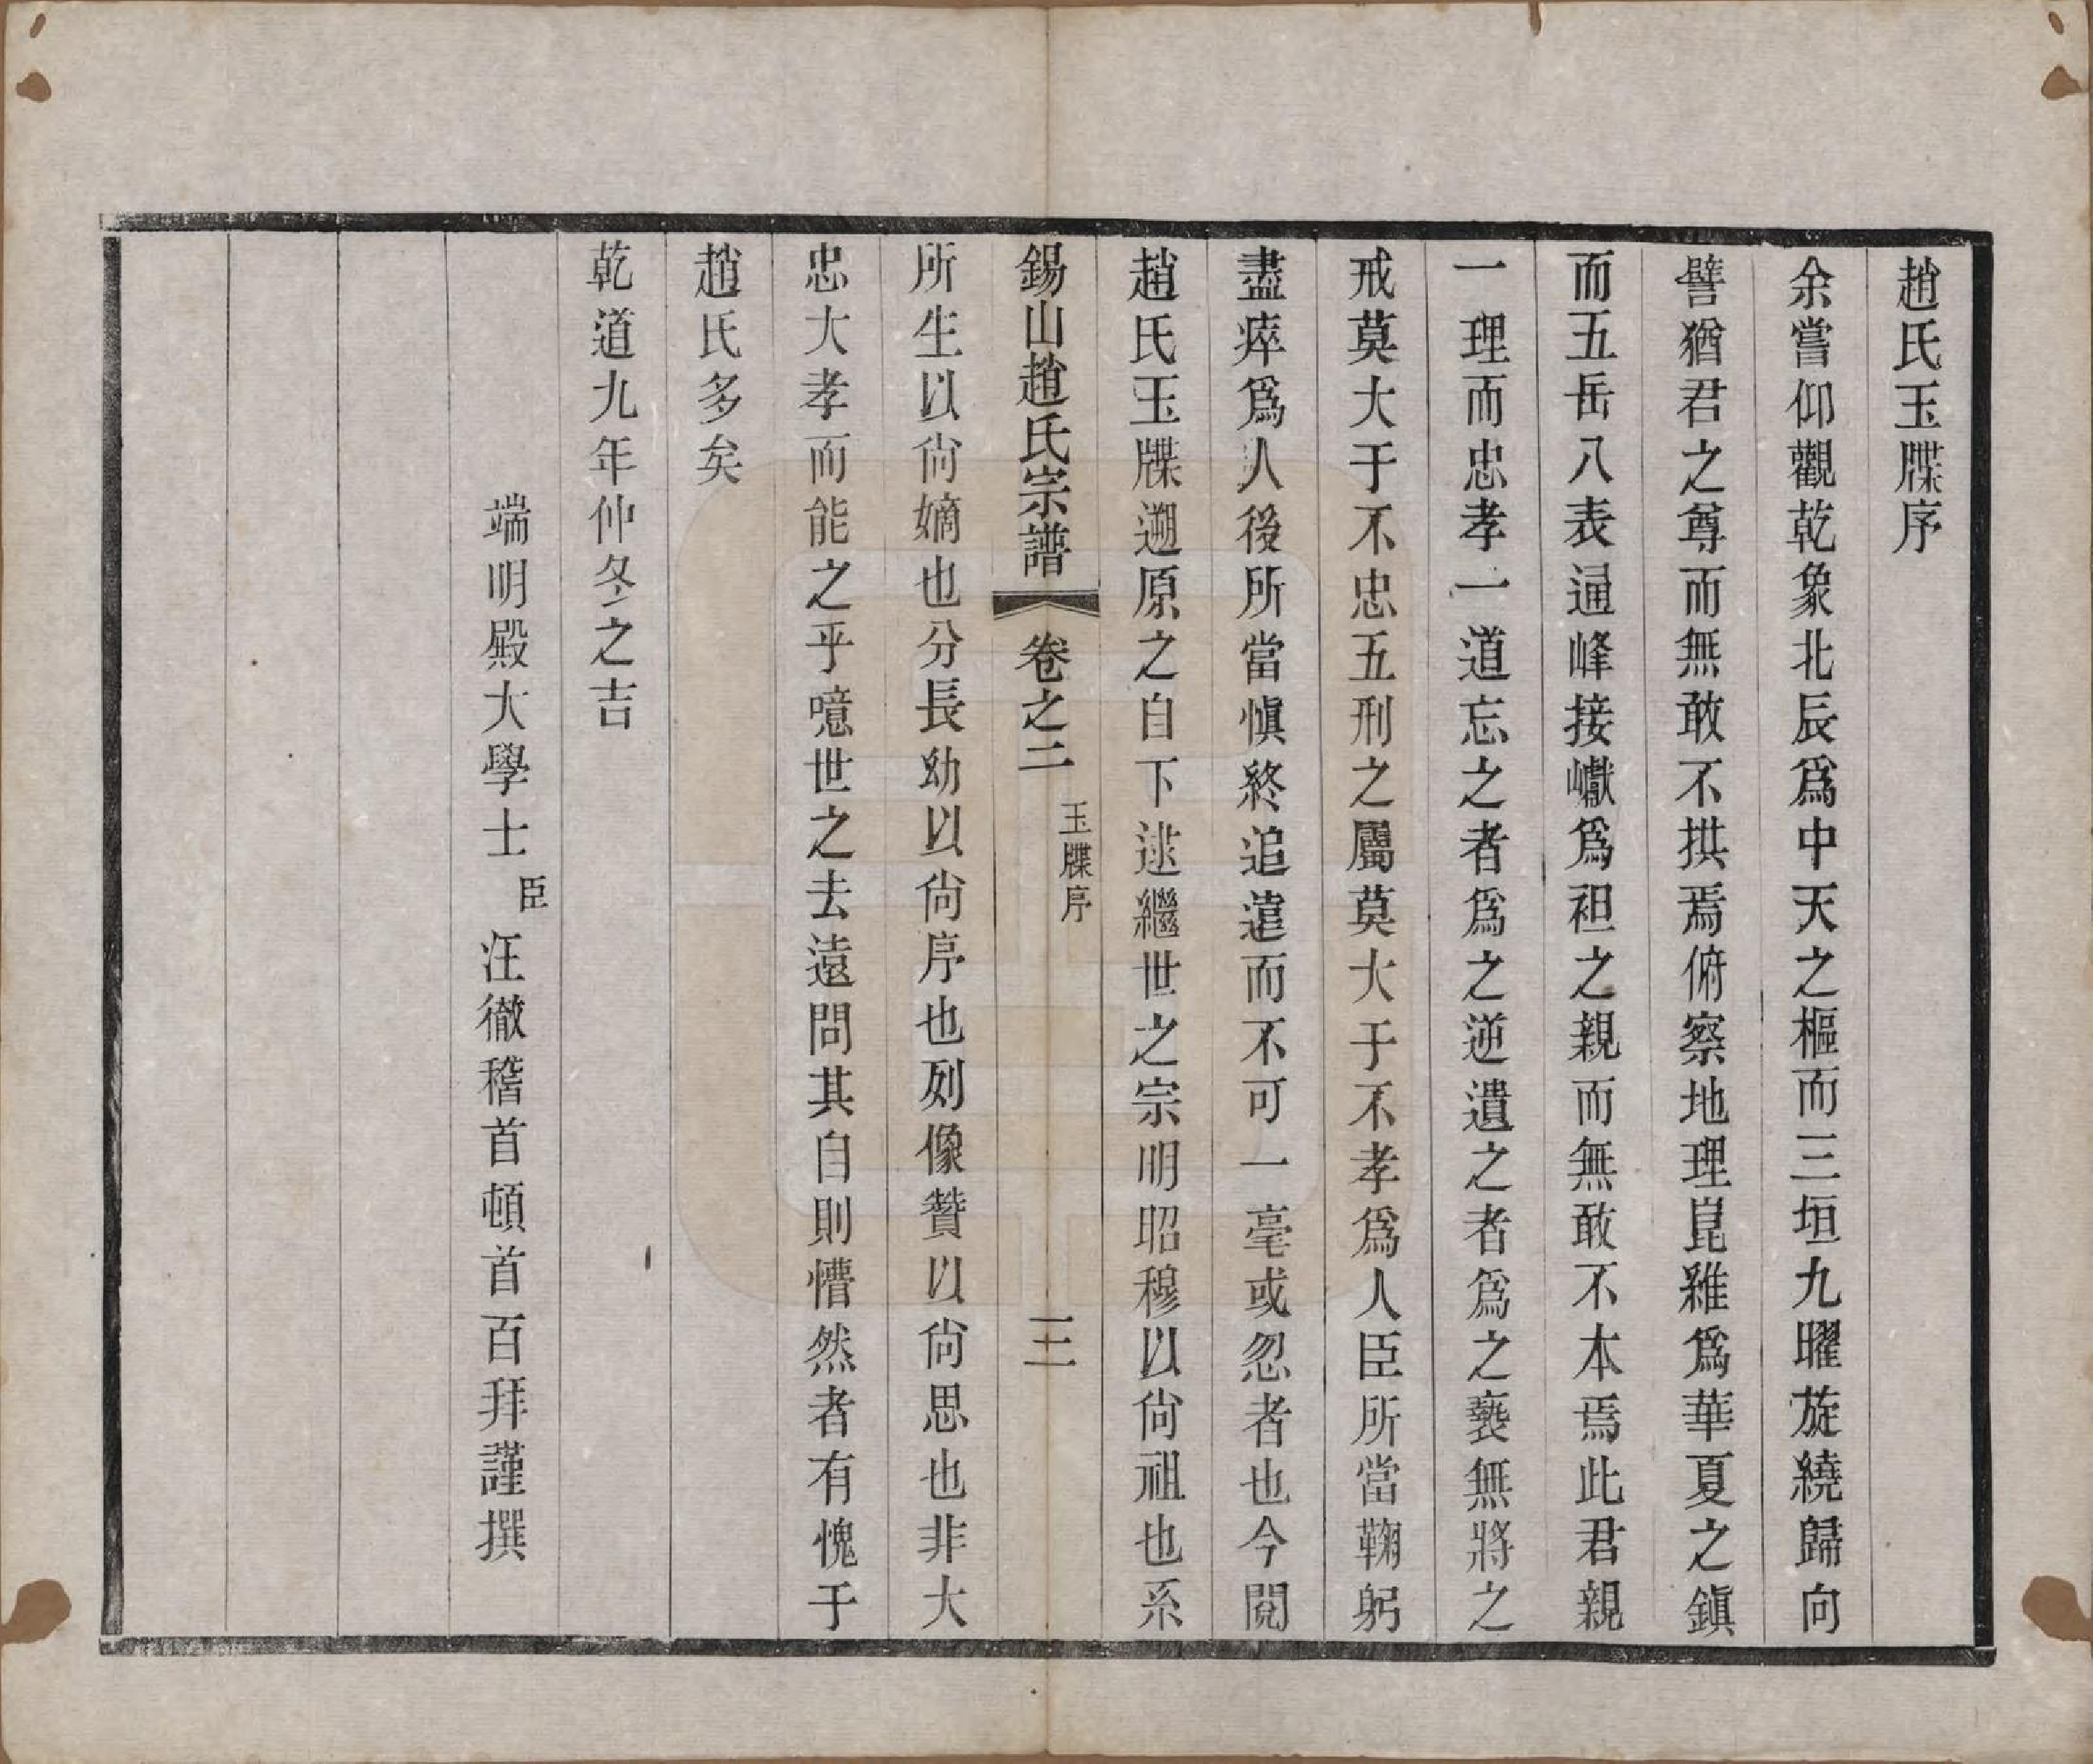 趙氏玉牒序
余嘗仰觀乾象北辰爲中天之樞而三垣九曜旋繞歸向
譬猶君之尊而無敢不拱焉俯察地理崑雖爲華夏之鎭
而五岳八表逼峰接巘爲袒之親而無敢不本焉此君親
一理而忠孝一道忘之者爲之逆遺之者爲之褻無將之
戒莫大于不忠五刑之屬莫大于不孝爲人臣所當鞠躬
盡瘁爲人後所當愼終追遠而不可一毫或忽者也今閱
趙氏玉牒遡原之自下逮繼世之宗明昭穆以尙祖也系
錫山趙氏宗譜
卷之二
玉牒序
三
所生以尙嫡也分長幼以尙序也列像贊以尙思也非大
忠大孝而能之乎噫世之去遠問其自則懵然者有愧于
趙氏多矣
乾道九年仲冬之吉
端明殿大學士臣汪徹稽首頓首百拜謹撰